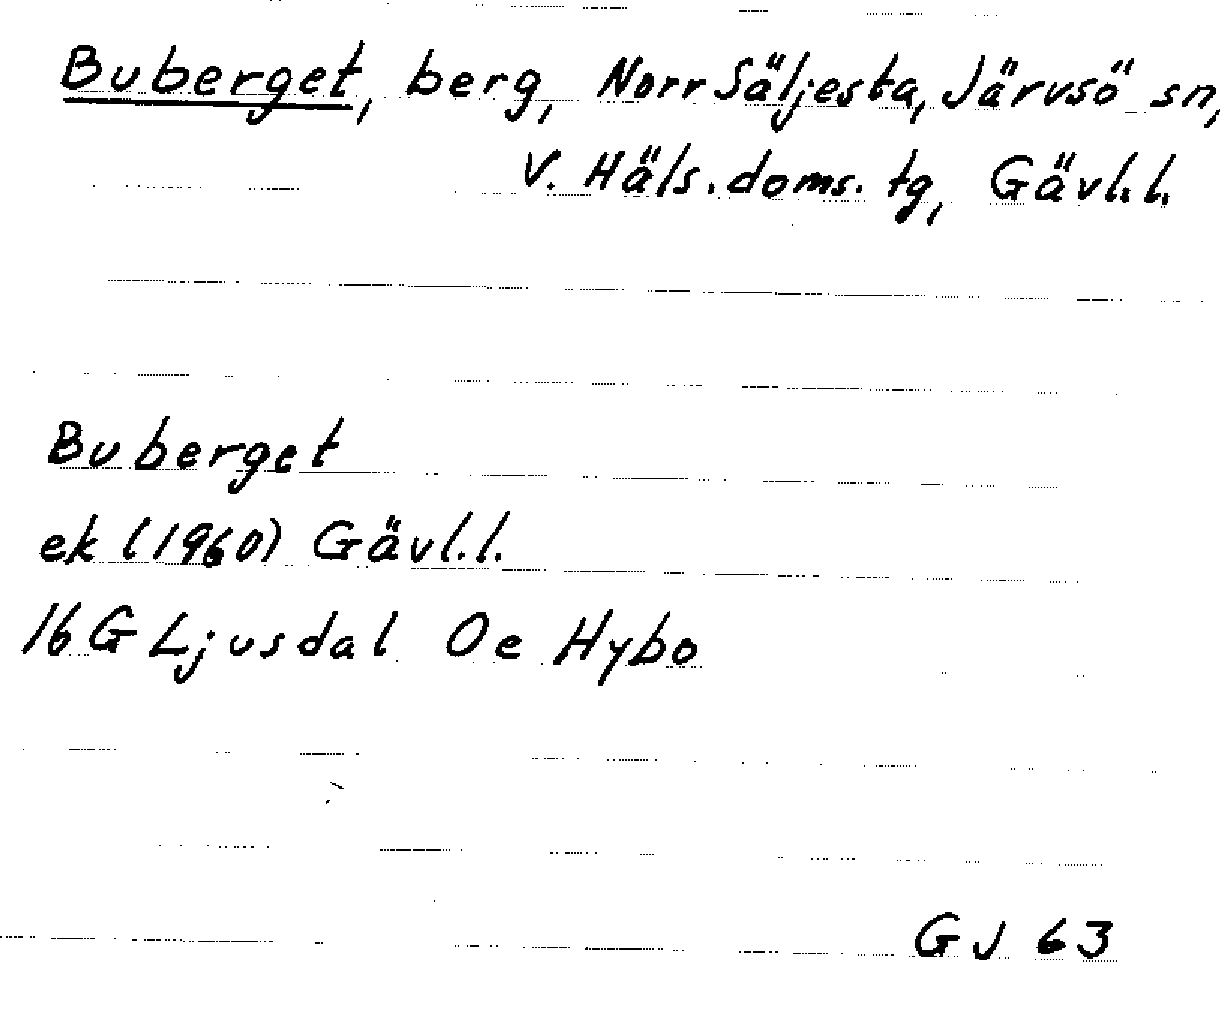 Buberget, berg, Norr Säljesta, Järvsö sn,
V. Häls. doms. tg, Gävl.l.
Buberget
ek (1960) Gävl.l.
16G Ljusdal Oe Hybo
GJ 63